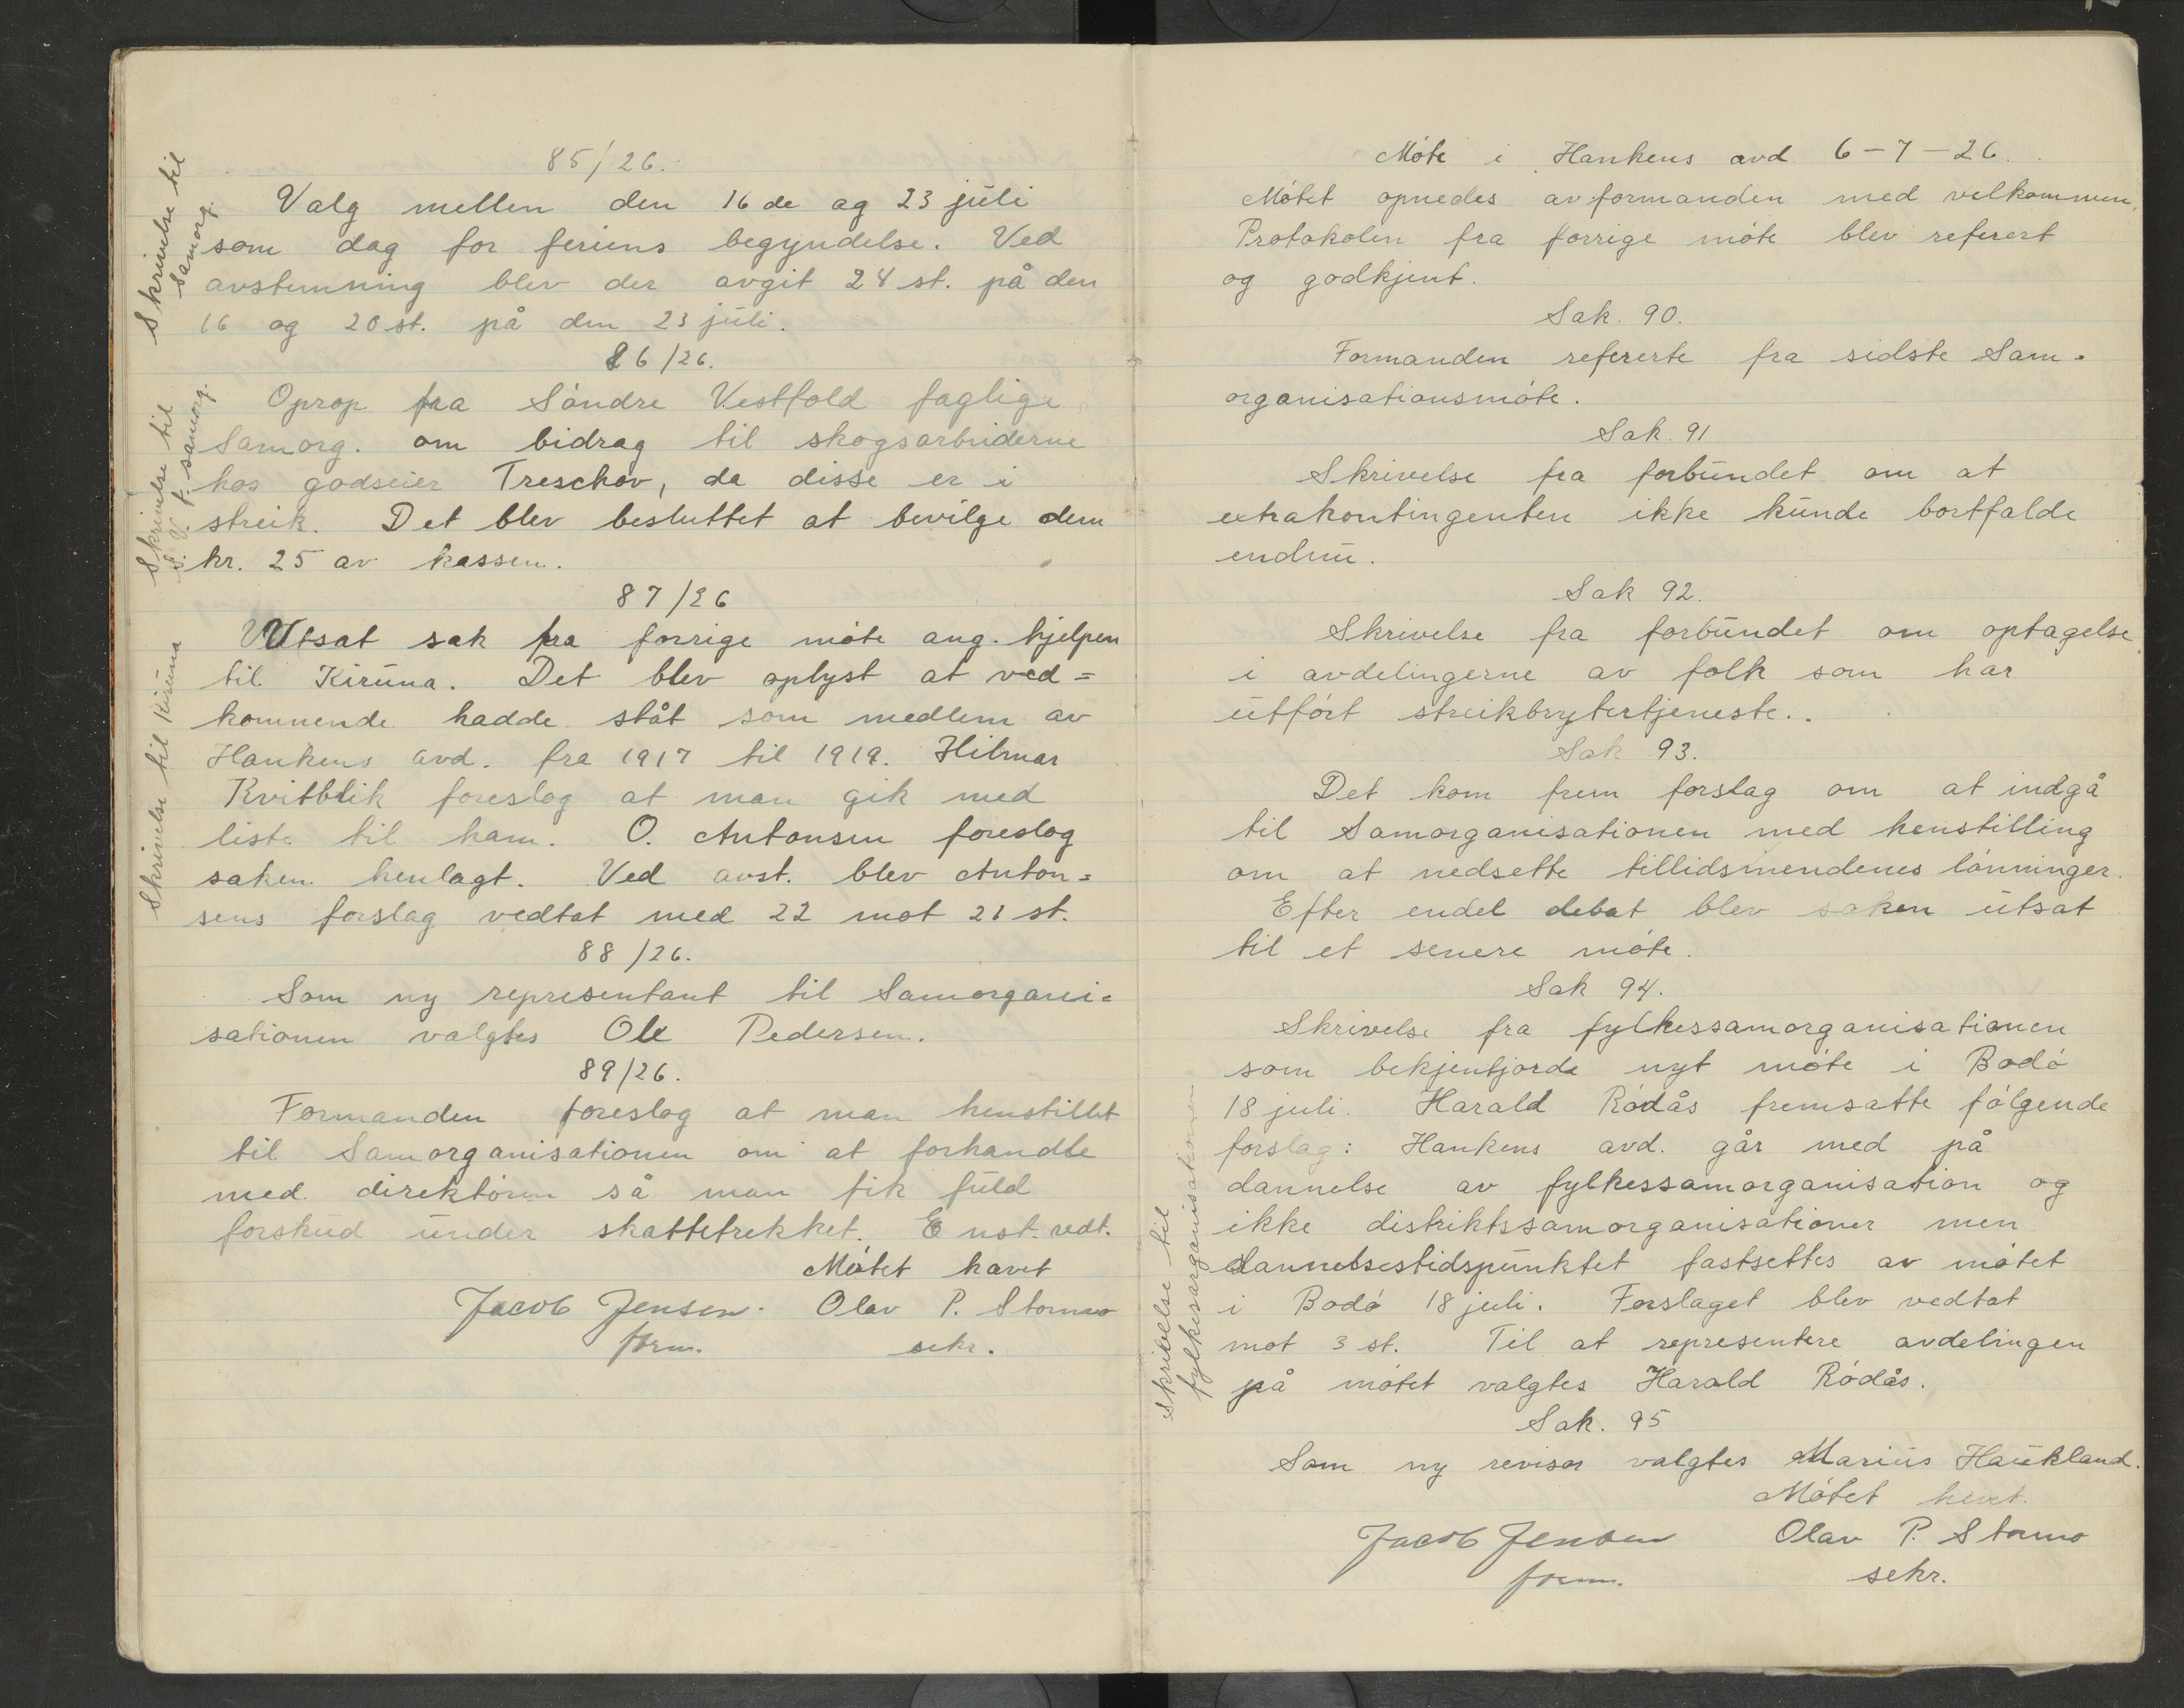 85/26.
Skrivelse til
Samorg.
Valg mellem den 16 de og 23 juli
som dag for feriens begyndelse. Ved
avstemning blev der avgit 24 st. på den
16 og 20 st. på den 23 juli.
86/26.
Skrivelse til
S. V. f. samorg.
Oprop fra Söndre Vestfold faglige
Samorg. om bidrag til skogsarbeiderne
hos godseier Treschov, da disse er i
streik. Det blev besluttet at bevilge dem
kr. 25 av kassen.
87/26
Skrivelse til Kiruna
Utsat sak fra forrige möte ang. hjelpen
til Kiruna. Det blev oplyst at ved=
kommende hadde ståt som medlem av
Hankens avd. fra 1917 til 1919. Hilmar
Kvitblik foreslog at man gik med
liste til ham. O. Antonsen foreslog
saken henlagt. Ved avst. blev Anton=
sens forslag vedtat med 22 mot 21 st.
88/26.
Som ny representant til Samorgani=
sationen valgtes Ole Pedersen.
89/26.
Formanden foreslog at man henstillet
til Samorganisationen om at forhandle
med direktören så man fik fuld
forskud under skattetrekket. Enst. vedt.
Mötet hævet
Jacob Jensen. Olav P. Stormo
form. sekr.
Möte i Hankens avd. 6-7-26.
Mötet opnedes av formanden med velkommen.
Protokolen fra forrige möte blev referert
og godkjent.
Sak. 90.
Formanden refererte fra sidste Sam=
organisationsmöte.
Sak. 91
Skrivelse fra forbundet om at
extrakontingenten ikke kunde bortfalde
endnu.
Sak 92.
Skrivelse fra forbundet om optagelse
i avdelingerne av folk som har
utfört streikbrytertjeneste..
Sak 93.
Det kom frem forslag om at indgå
til Samorganisationen med henstilling
om at nedsette tillidsmendenes lönninger.
Efter endel debat blev saken utsat
til et senere möte.
Sak 94.
Skrivelse fra fylkessamorganisationen
som bekjentjorde nyt möte i Bodö
18 juli. Harald Rödås fremsatte fölgende
forslag: Hankens avd. går med på
dannelse av fylkessamorganisation og
ikke distriktssamorganisationer men
dannelsestidspunktet fastsettes av mötet
i Bodö 18 juli. Forslaget blev vedtat
mot 3 st. Til at representere avdelingen
på mötet valgtes Harald Rödås.
Skrivelse til
fylkesorganisationen
Sak. 95
Som ny revisor valgtes Marius Haukland.
Mötet hevet.
Jacob Jensen Olav P. Stormo
form. sekr.